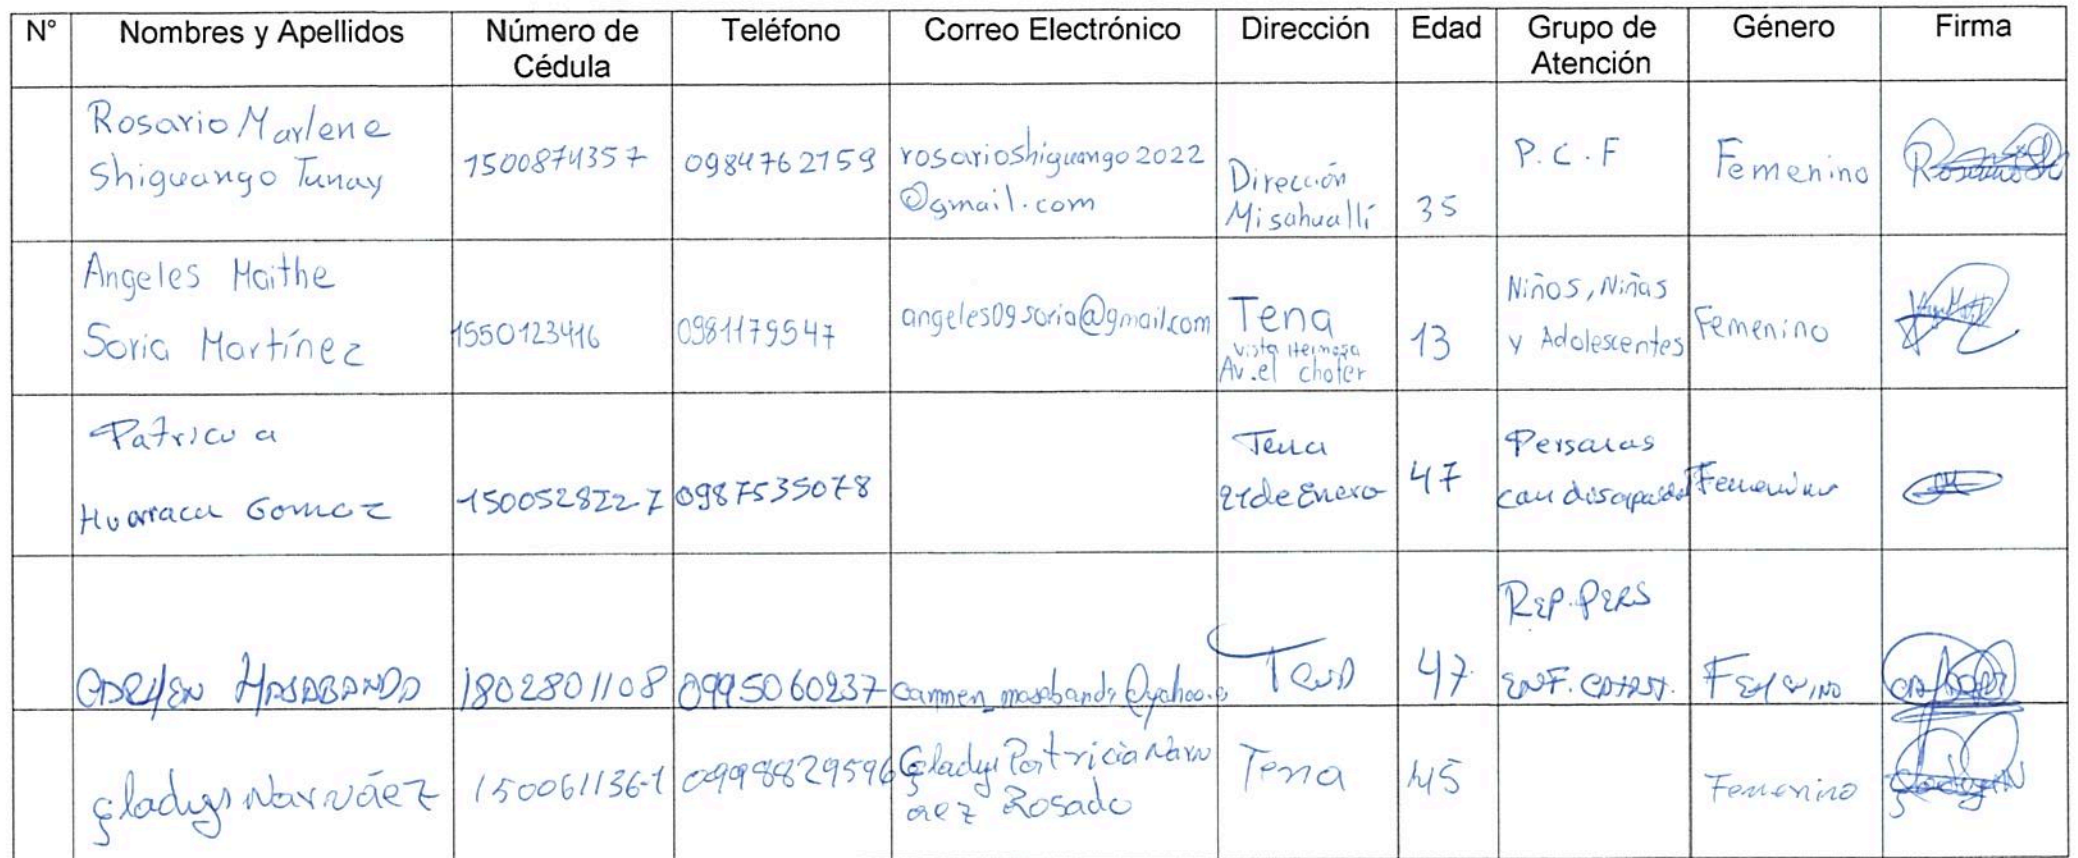 N° Nombres y Apellidos Número de Cédula Teléfono Correo Electrónico Dirección Edad Grupo de Atención Género Firma
Rosario Marlene
Shiguango Tunay
1500874357
0984762159
rosarioshiguango2022
@gmail.com
Dirección
Misahuallí
35
P.C.F
Femenino
Angeles Maithe
Soria Martínez
1550123416
0981179547
angeles09soria@gmail.com
Tena
Vista Hermosa
Av.el chofer
13
Niños, Niñas
y Adolescentes
Femenino
Patricia
Huaraca Gomez
0987535078
Tena
21 de Enero
47
Personas
con
Femenino
CARMEN MASABANDA
1802801108
0995060237
Tena
47
REP. PERS
ENF. CATAST.
FEMENINO
Gladys Narváez
1500611361
0998829596
Gladys Patricia Narv
áez Rosado
Tena
45
Femenino